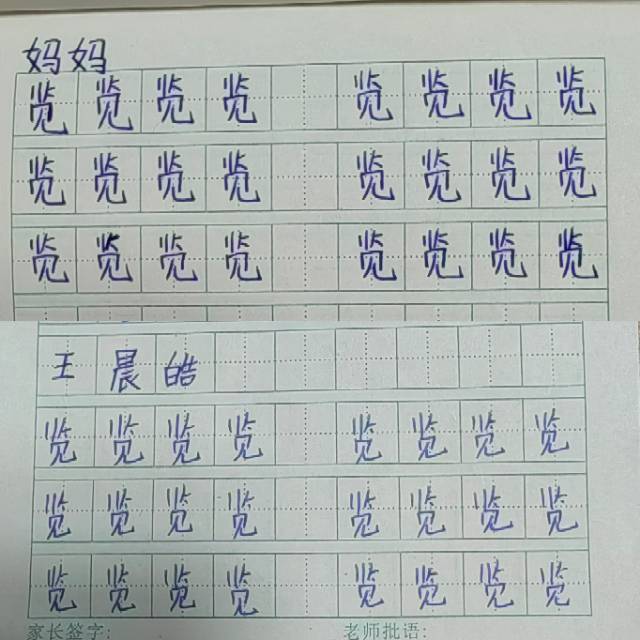 妈妈
览览览览 览览览览
览览览览 览览览览
览览览览 览览览览
王晨皓
览览览览 览览览览
览览览览 览览览览
览览览览 览览览览
家长签字: 老师批语: